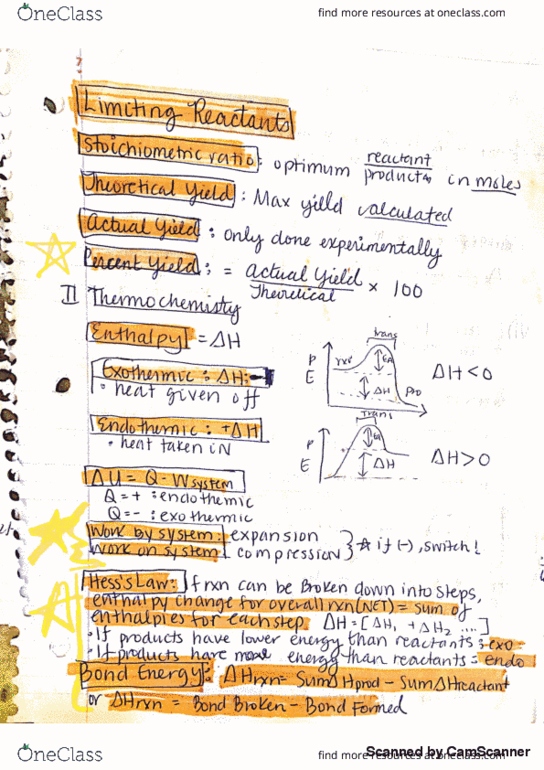 OneClass
find more resources at oneclass.com
Limiting Reactants
Stoichiometric ratio: optimum reactant
products in moles
Theoretical Yield: Max yilld calculated
Actual Yield: only done experimentally
Percent Yield: = actual Yield
Theoretical × 100
II Thermochemistry
Enthalpy = ΔH
trans
P
E
rxt
EA
ΔH
pro
ΔH < 0
Exothermic: ΔH: -
• heat given off
Endothermic: +ΔH
• heat taken iN
trans
P
E
EA
ΔH
ΔH > 0
ΔU = Q - Wsystem
Q = + : endothermic
Q = - : exothermic
Work by system: expansion
Work on system: compression } ☆ if (-), switch!
Hess's Law: If rxn can be Broken down into steps,
enthalpy change for overall rxn (NET) = sum of
enthalpies for each step. ΔH = [ΔH₁ + ΔH₂ ....]
• If products have lower energy than reactants = exo
• If products have more energy than reactants = endo
Bond Energy: ΔHrxn = Sum ΔHprod - Sum ΔHreactant
or ΔHrxn = Bond Broken - Bond Formed
OneClass
find more resources at oneclass.com
Scanned by CamScanner